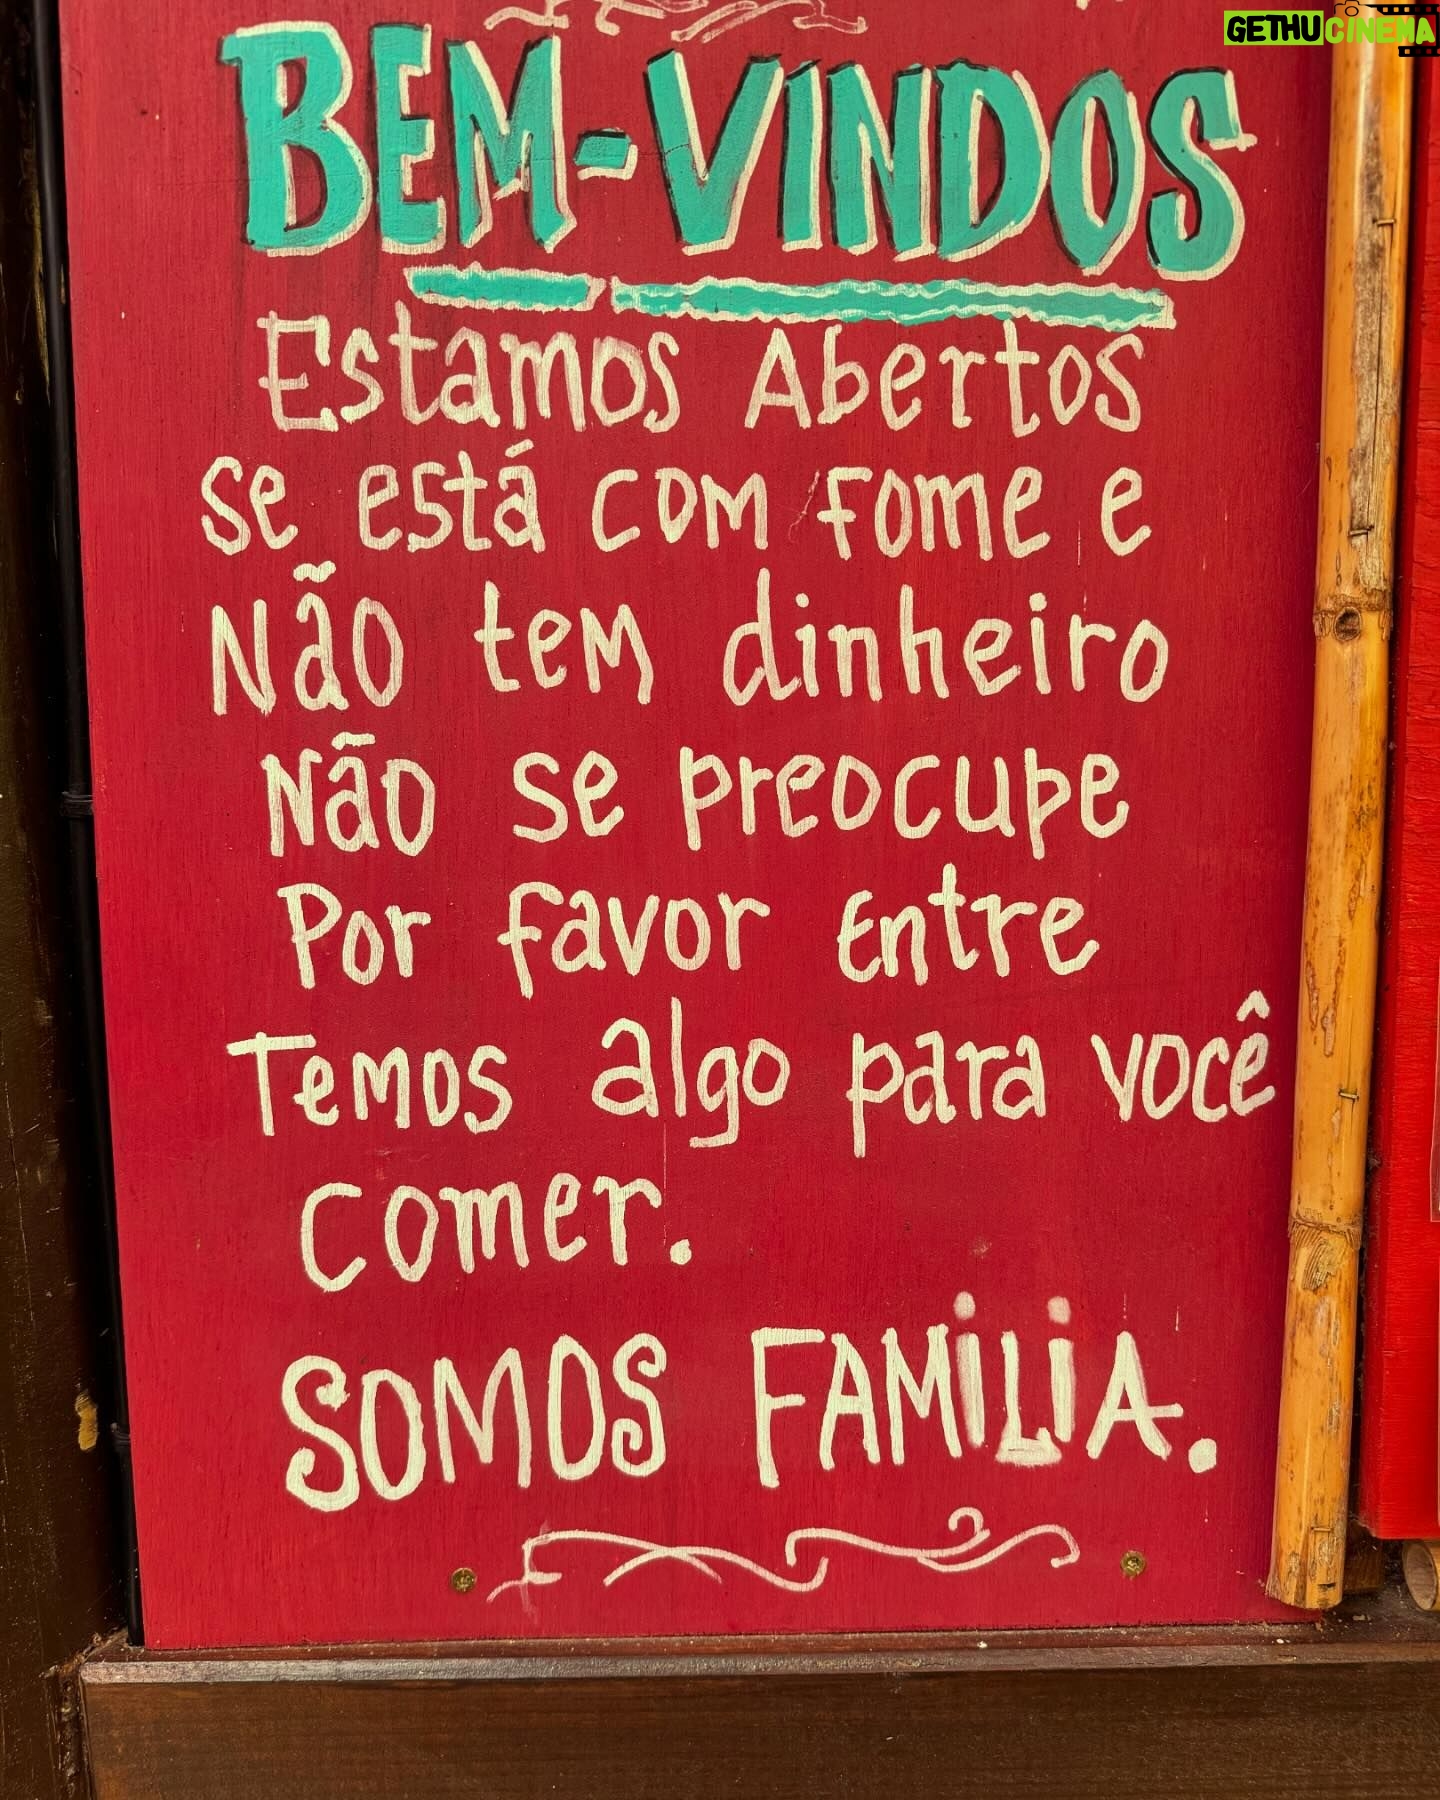 GETHUCINEMA
BEM-VINDOS
Estamos Abertos
se está com fome e
Não tem dinheiro
Não se preocupe
Por favor Entre
Temos algo para você
comer.
SOMOS FAMiLiA.